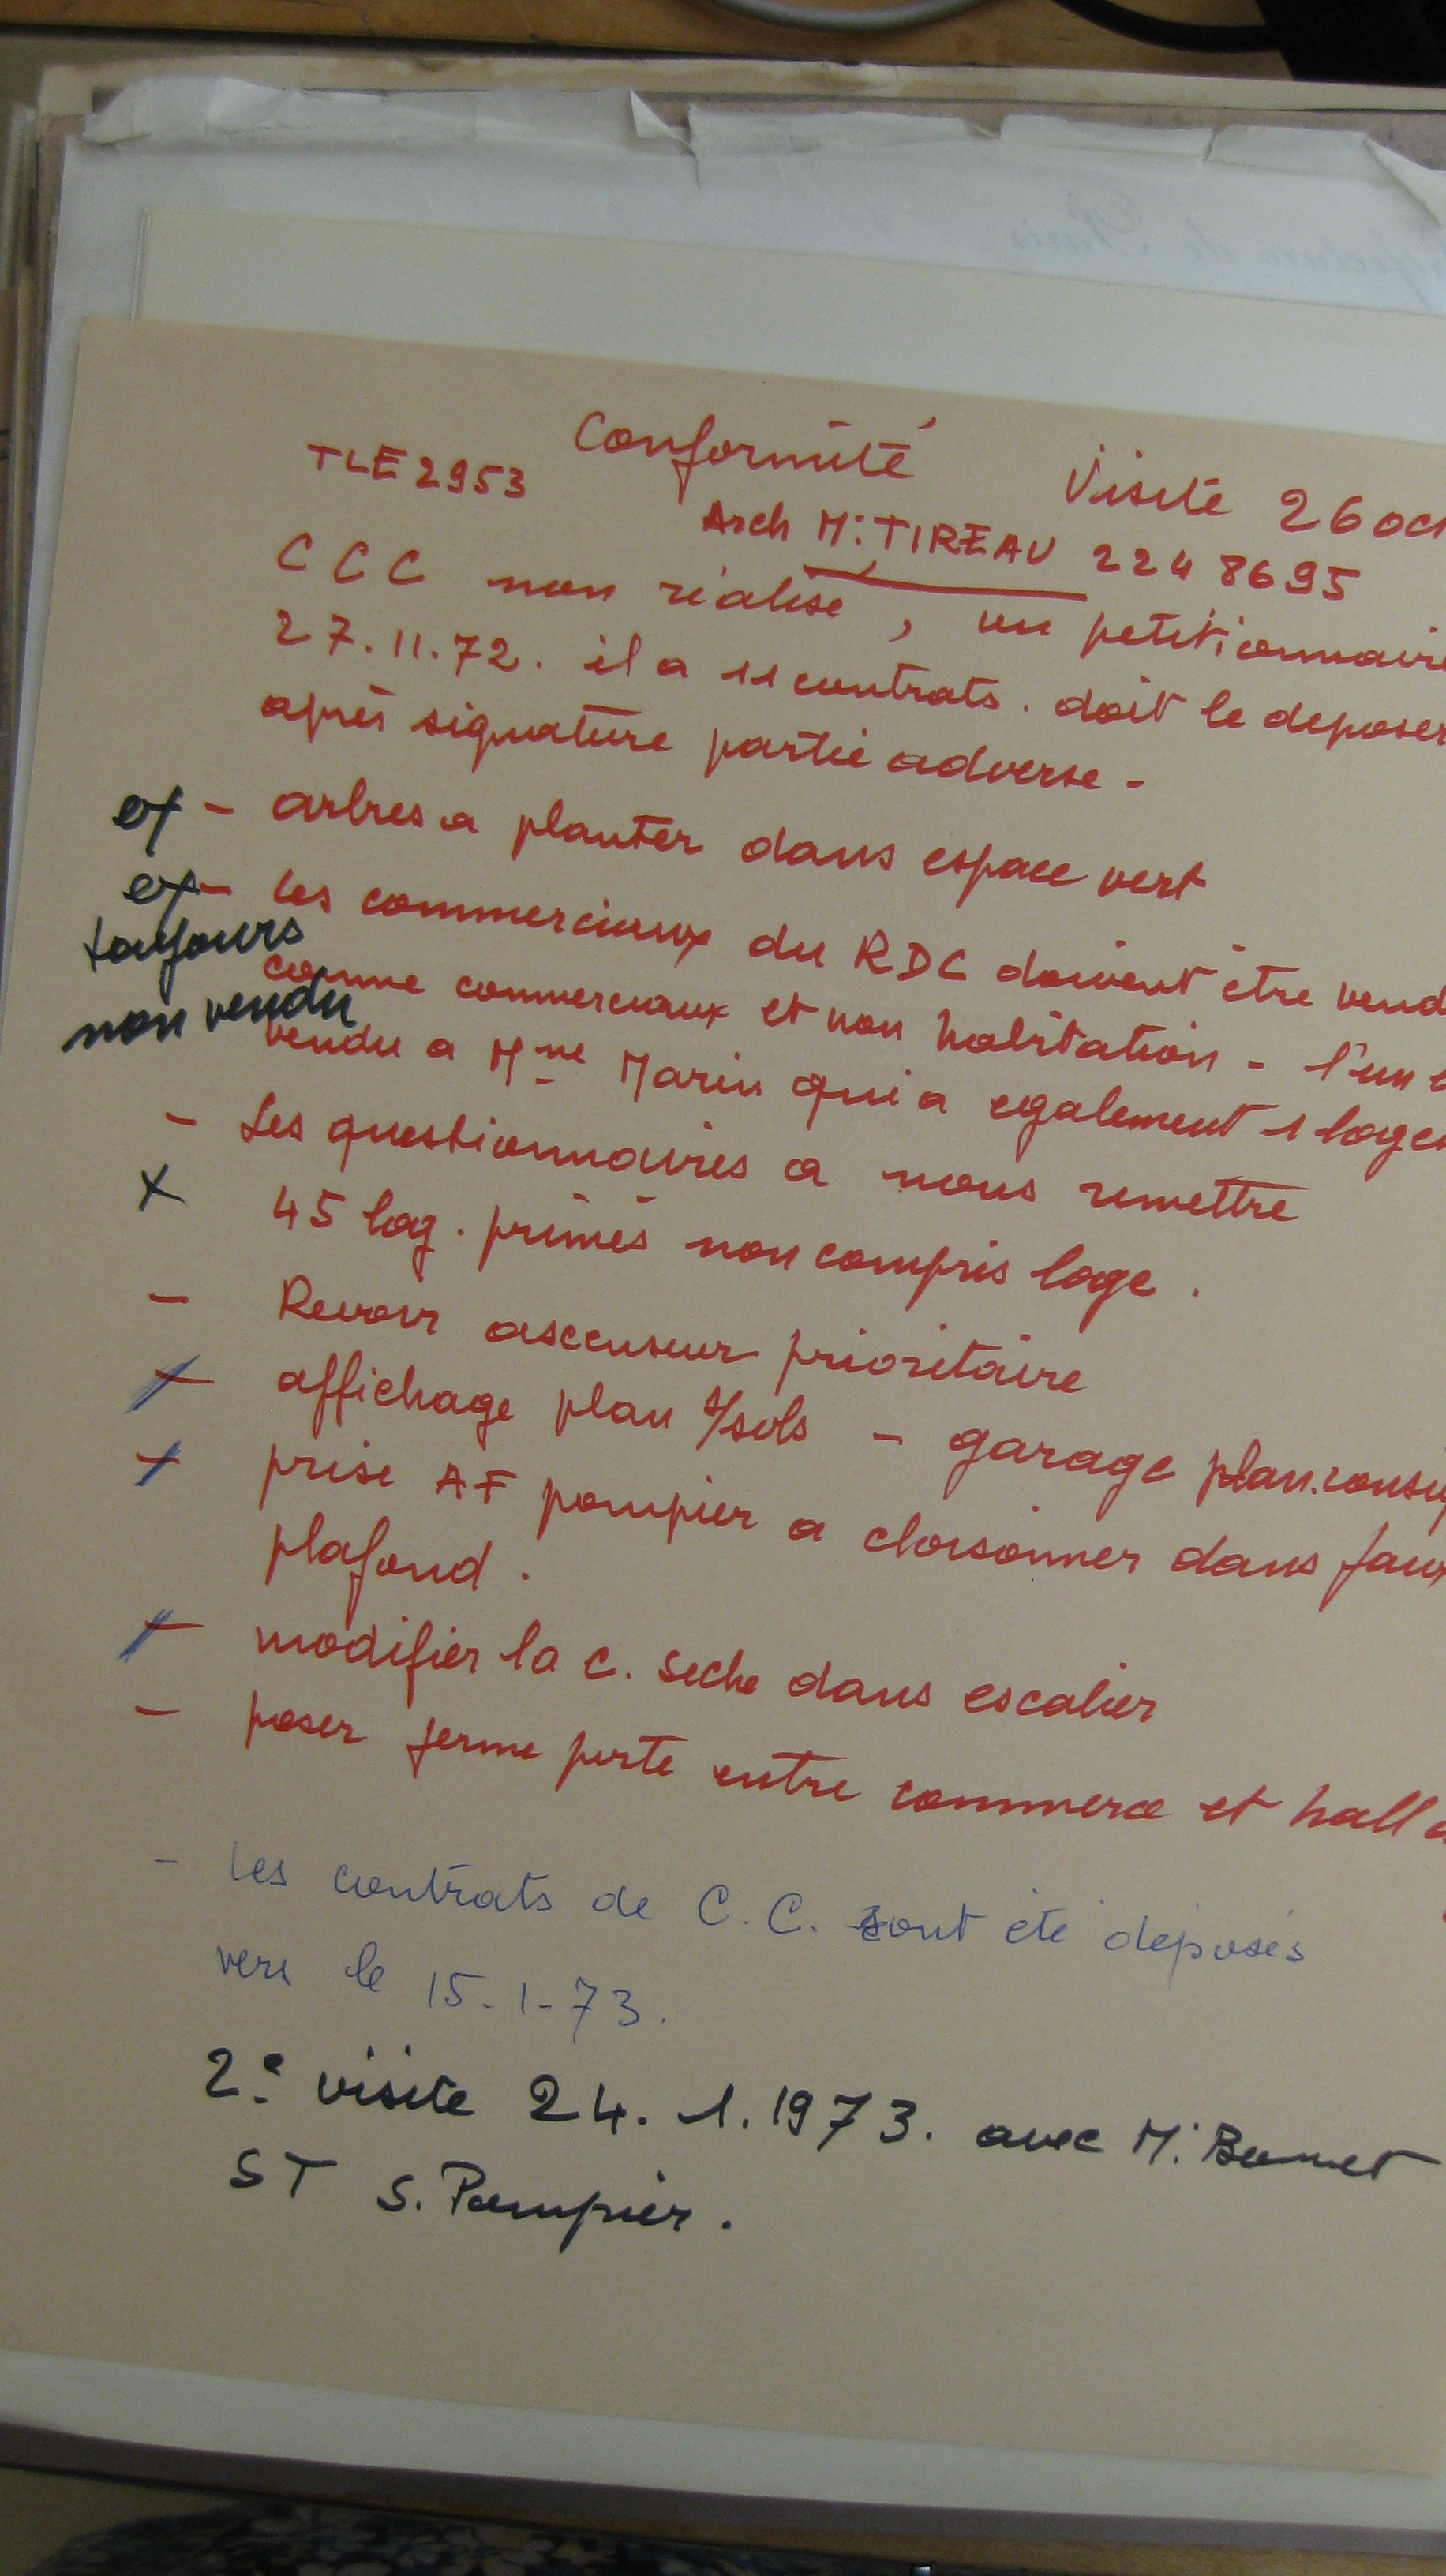 Préfecture de Paris
Conformité Visite 26 oct
TLE 2953 Arch Mr TIREAU 224 8695
CCC non réalisé, vu petitionnaire
27.11.72. il a 11 contrats. doit le deposer
après signature partie adverse -
- arbres a planter dans espace vert
- les commerciaux du RDC doivent être vend
toujours
comme commerciaux et non habitation - l'un
non vendu
vendu a Mme Marin qui a egalement 1 loge
- Les questionnaires a nous remettre
x 45 log. primés non compris loge.
- Revoir ascenseur prioritaire
- affichage plan s/sols - garage plan.
- prise AF pompier a cloisonner dans faux
plafond.
- modifier la c. seche dans escalier
- poser ferme porte entre commerce et hall
- les contrats de C.C. ont été déposés
vers le 15-1-73.
2e visite 24.1.1973. avec Mr
ST S. Pompier.